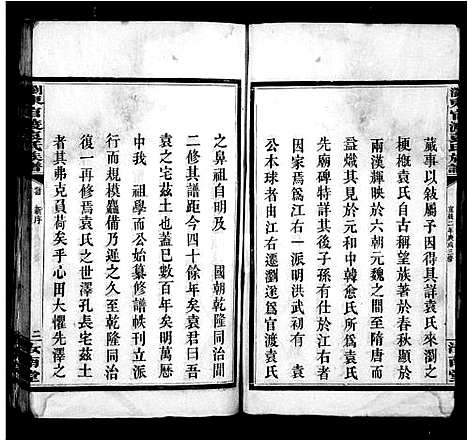 葳事以敘屬予因得具詳袁氏來瀏之
梗槪袁氏自古稱望族著於春秋顯於
兩漢輝映於六朝元魏之間至隋唐而
益熾其見於元和中韓愈氏所爲袁氏
先廟碑特詳其後子孫有仕於江右者
因家焉爲江右一派明洪武初有 袁
公木球者由江右遷瀏遂爲官渡袁氏
之鼻祖自明及 國朝乾隆同治間
二修其譜距今四十餘年矣袁君曰吾
袁之宅茲土也蓋已數百年矣明萬曆
中我 祖學而公始纂修譜帙刊立派
行而規模麤備焉繼此至乾隆同治而
後一再修焉袁氏之世澤孔長宅茲土
者其弗克負荷矣乎心田大懼先澤之
瀏東官渡袁氏族譜
新序
二
汝南堂
瀏東官渡袁氏族譜
宣統二年庚戌三修
汝南堂